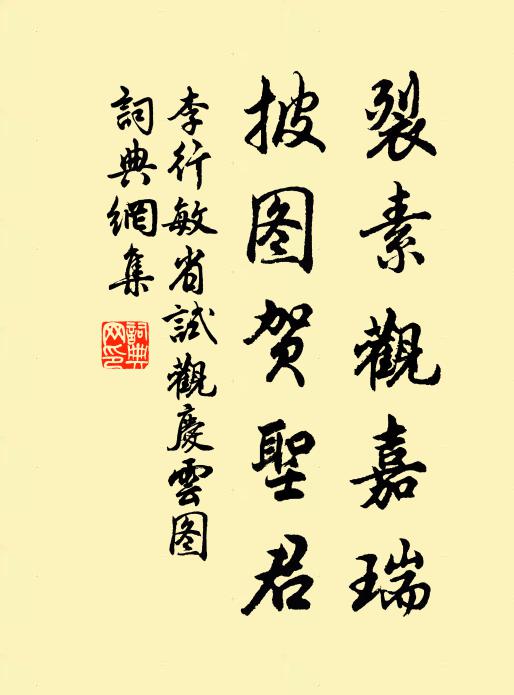 裂素觀嘉瑞
披图贺聖君
李行敏省試觀慶雲图
詞典網集
詞典网印